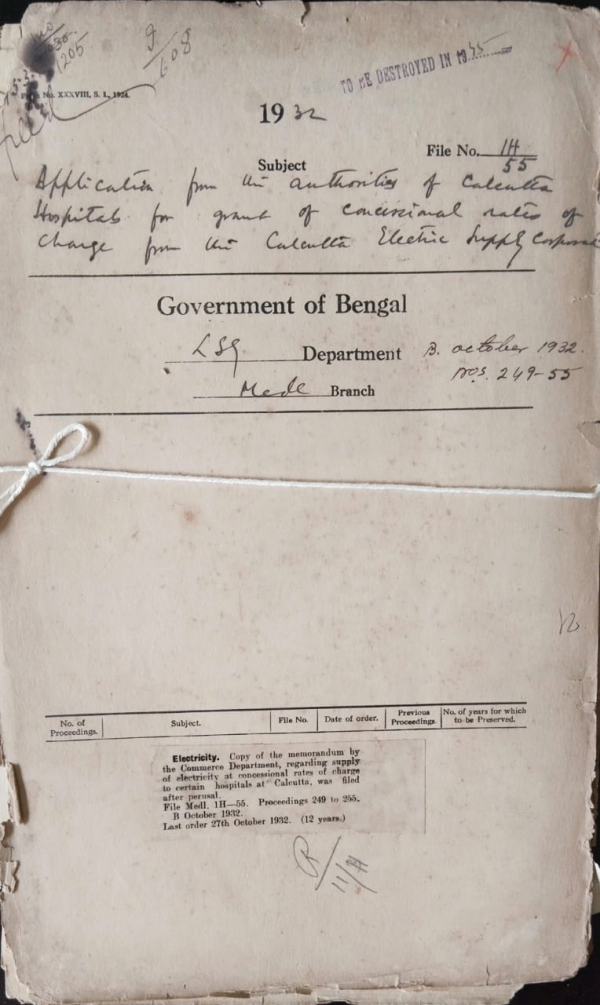 9/608
1205
No. XXXVIII, S. I., 1924.
TO BE DESTROYED IN 19
1932
File No. 1H/55
Subject
Application from the authorities of Calcutta
Hospitals for grant of concessional rates of
charge from the Calcutta Electric Supply Corporati
Government of Bengal
LSG Department B. October 1932.
Nos. 249-55
Medl Branch
12
No. of Proceedings. Subject. File No. Date of order. Previous Proceedings. No. of years for which to be Preserved.
Electricity. Copy of the memorandum by
the Commerce Department, regarding supply
of electricity at concessional rates of charge
to certain hospitals at Calcutta, was filed
after perusal.
File Medl. 1H—55. Proceedings 249 to 255.
B October 1932.
Last order 27th October 1932. (12 years.)
R/11/H